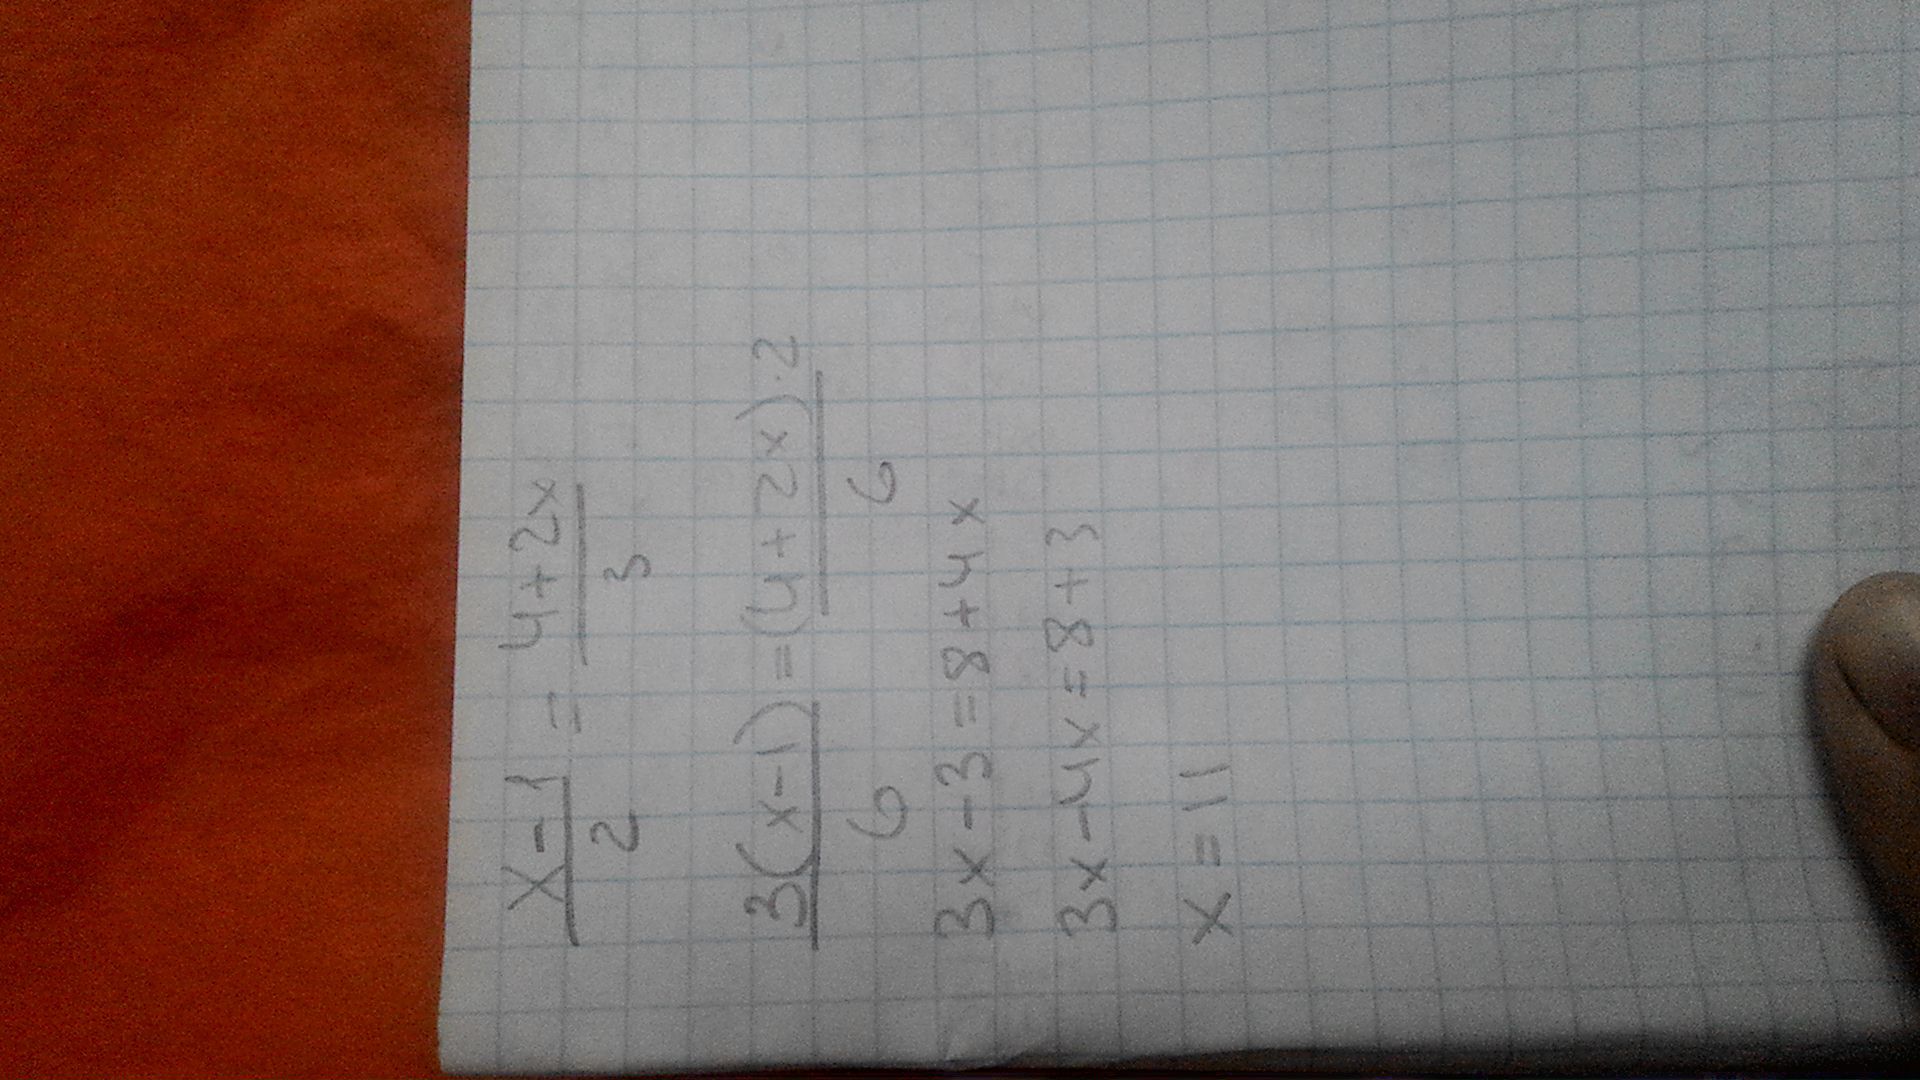 x-1/2 = 4+2x/3
3(x-1)/6 = (4+2x)·2/6
3x-3=8+4x
3x-4x=8+3
x=11